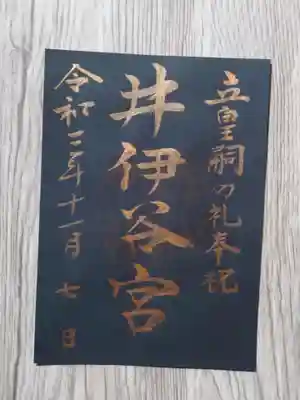 立皇嗣の礼奉祝
井伊谷宮
令和二年十一月七日